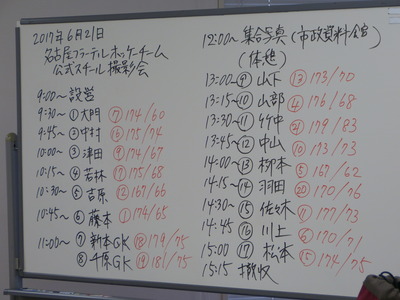 2017年6月21日
名古屋フラーテルホッケーチーム
公式スチール撮影会
9:00〜 設営
9:30〜 ①大門 ⑦174/60
9:45〜 ②中村 ⑯175/74
10:00〜 ③津田 ⑨174/67
10:15〜 ④若林 ⑦175/68
10:30〜 ⑤吉原 ②167/66
10:45〜 ⑥藤本 ①174/65
11:00〜 ⑦新本GK ⑱179/75
⑧千原GK ⑲181/75
12:00〜 集合写真(市政資料館)
(休憩)
13:00〜⑨山下 ⑬173/70
13:15〜⑩山部 ④176/68
13:30〜⑪竹中 ㉑179/83
13:45〜⑫中山 ⑩173/73
14:00〜⑬柳本 ⑤167/62
14:15〜⑭羽田 ⑳170/76
14:30〜⑮佐々木 177/73
14:45 ⑯川上 ⑥170/71
15:00 ⑰松本 ⑮174/75
15:15 撤収